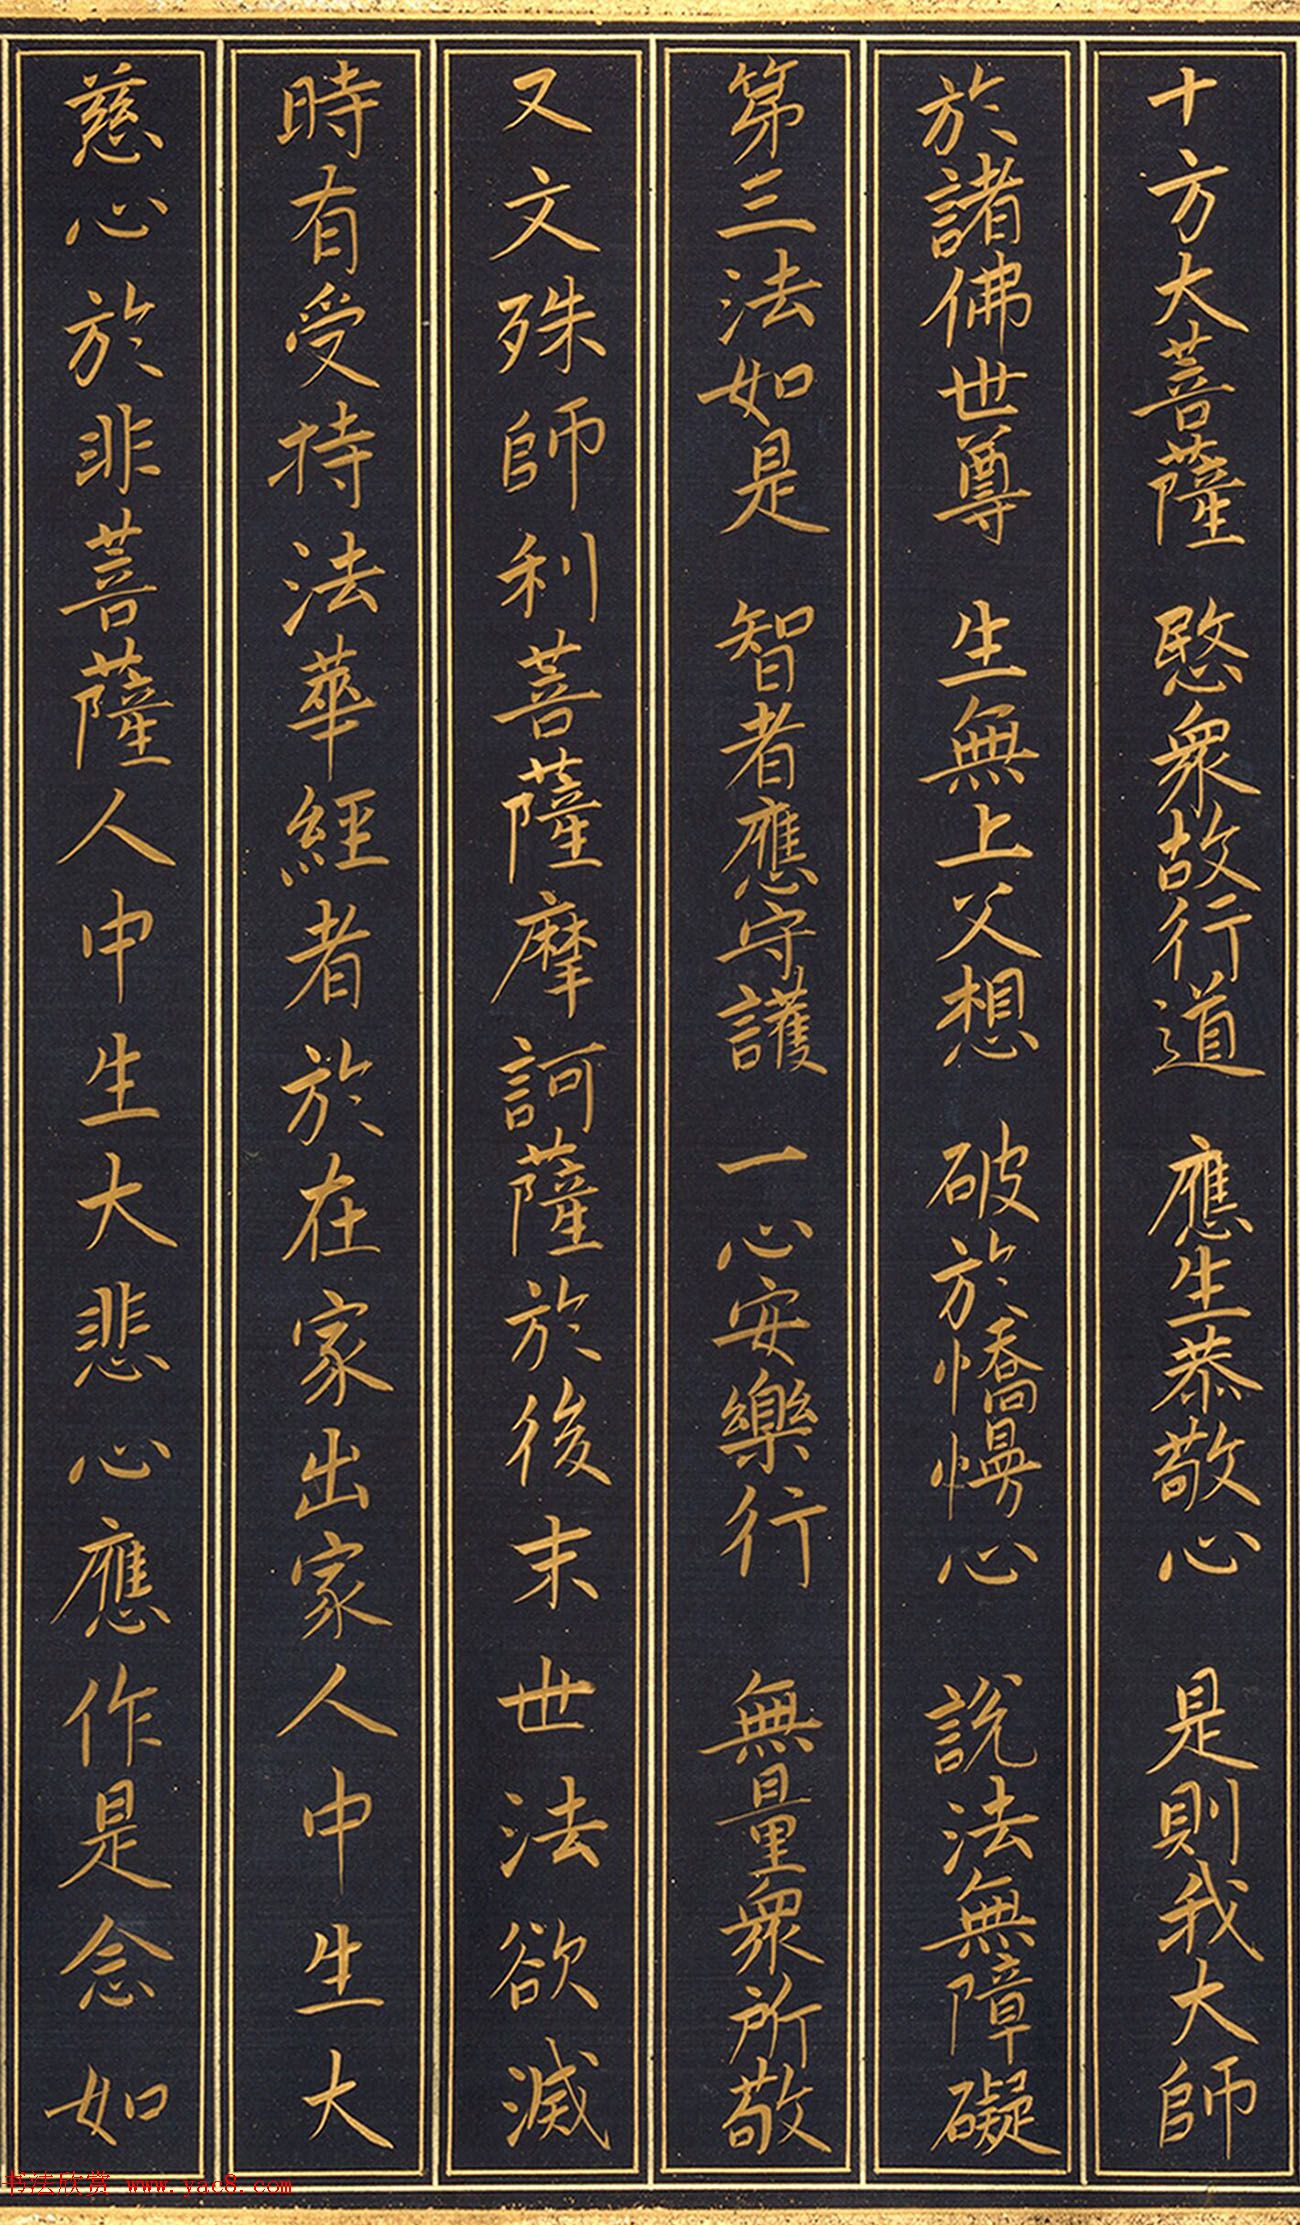 十方大菩薩 愍衆故行道 應生恭敬心 是則我大師
於諸佛世尊 生無上父想 破於憍慢心 說法無障礙
第三法如是 智者應守護 一心安樂行 無量衆所敬
又文殊師利菩薩摩訶薩於後末世法欲滅
時有受持法華經者於在家出家人中生大
慈心於非菩薩人中生大悲心應作是念如
书法欣赏 www.yac8.com